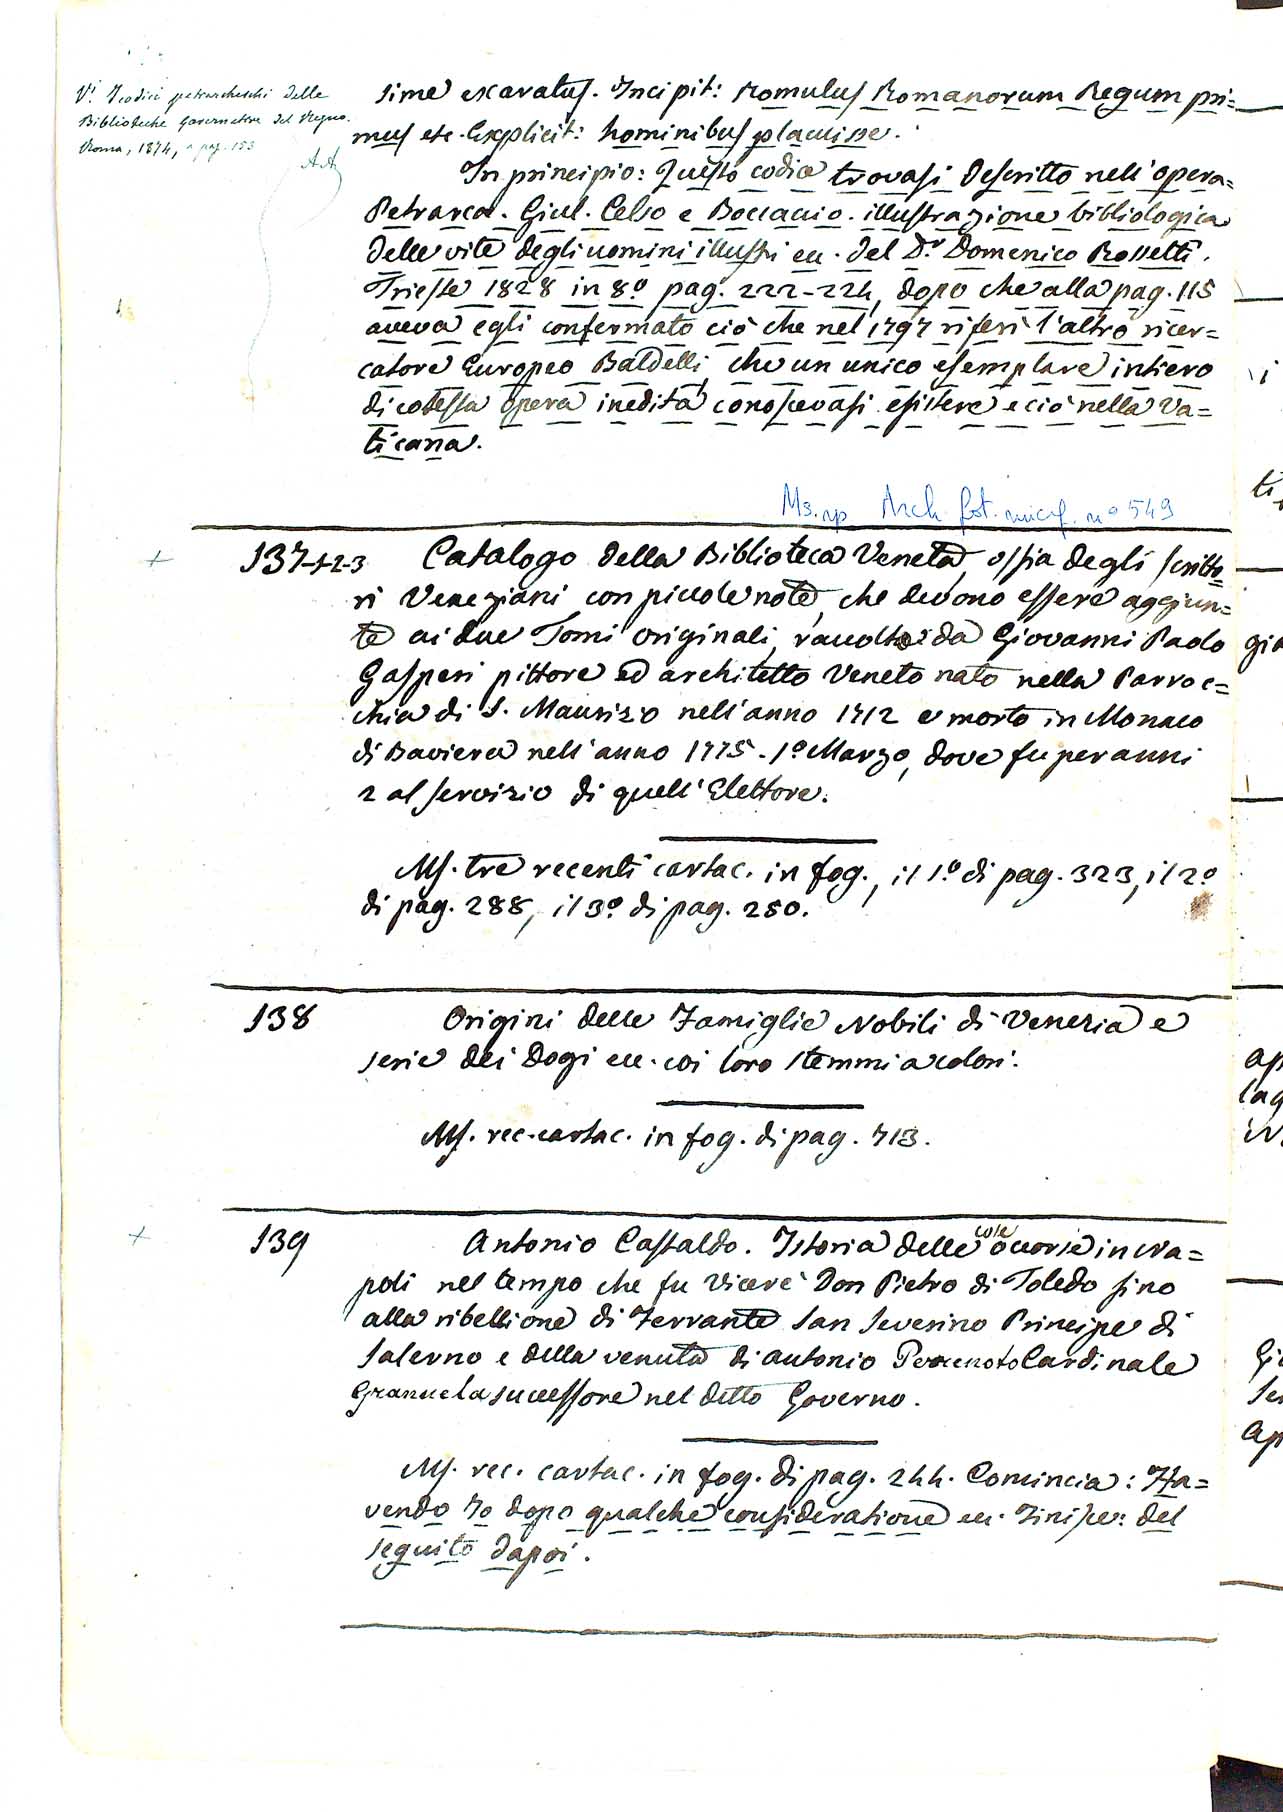 V. I codici petrarcheschi delle
Biblioteche Governative del Regno.
Roma, 1874, a pag. 153
A.A
sime exaratus. Incipit: Romulus Romanorum Regum pri=
mus etc. Explicit: hominibus placuisse.
In principio: Questo codice trovasi descritto nell'opera=
Petrarca. Giul. Celso e Boccaccio. illustrazione bibliologica
delle vite degli uomini illustri ec. del Dr. Domenico Rossetti.
Trieste 1828 in 8º pag. 222-224, dopo che alla pag. 115
aveva egli confermato ciò che nel 1797 riferì l'altro ricer=
catore Europeo Baldelli, che un unico esemplare intiero
di cotesta opera inedita conoscevasi esistere e ciò nella Va=
ticana.
Ms. rip Arch. fot. microf. nº 549
+ 137-1-2-3 Catalogo della Biblioteca Veneta, ossia degli scritto=
ri Veneziani con piccole note, che devono essere aggiun=
te ai due Tomi originali, raccolte da Giovanni Paolo
Gasperi pittore ed architetto Veneto nato nella Parroc=
chia di S. Maurizio nell'anno 1712 e morto in Monaco
di Baviera nell'anno 1775. 1º Marzo, dove fu per anni
2 al servizio di quell'Elettore.
Ms. tre recenti cartac. in fog., il 1º di pag. 323, il 2º
di pag. 288, il 3º di pag. 280.
138 Origini delle Famiglie Nobili di Venezia e
serie dei Dogi ecc. coi loro stemmi a colori.
Ms. rec. cartac. in fog. di pag. 713.
+ 139 Antonio Castaldo. Istoria delle cose occorse in Na=
poli nel tempo che fu Vicerè Don Pietro di Toledo sino
alla ribellione di Ferrante San Severino Principe di
Salerno e della venuta di Antonio Perrenoto Cardinale
Granuela successore nel detto Governo.
Ms. rec. cartac. in fog. di pag. 244. Comincia: Ha=
vendo Io dopo qualche consideratione ec. Finisce: del
seguito dapoi.